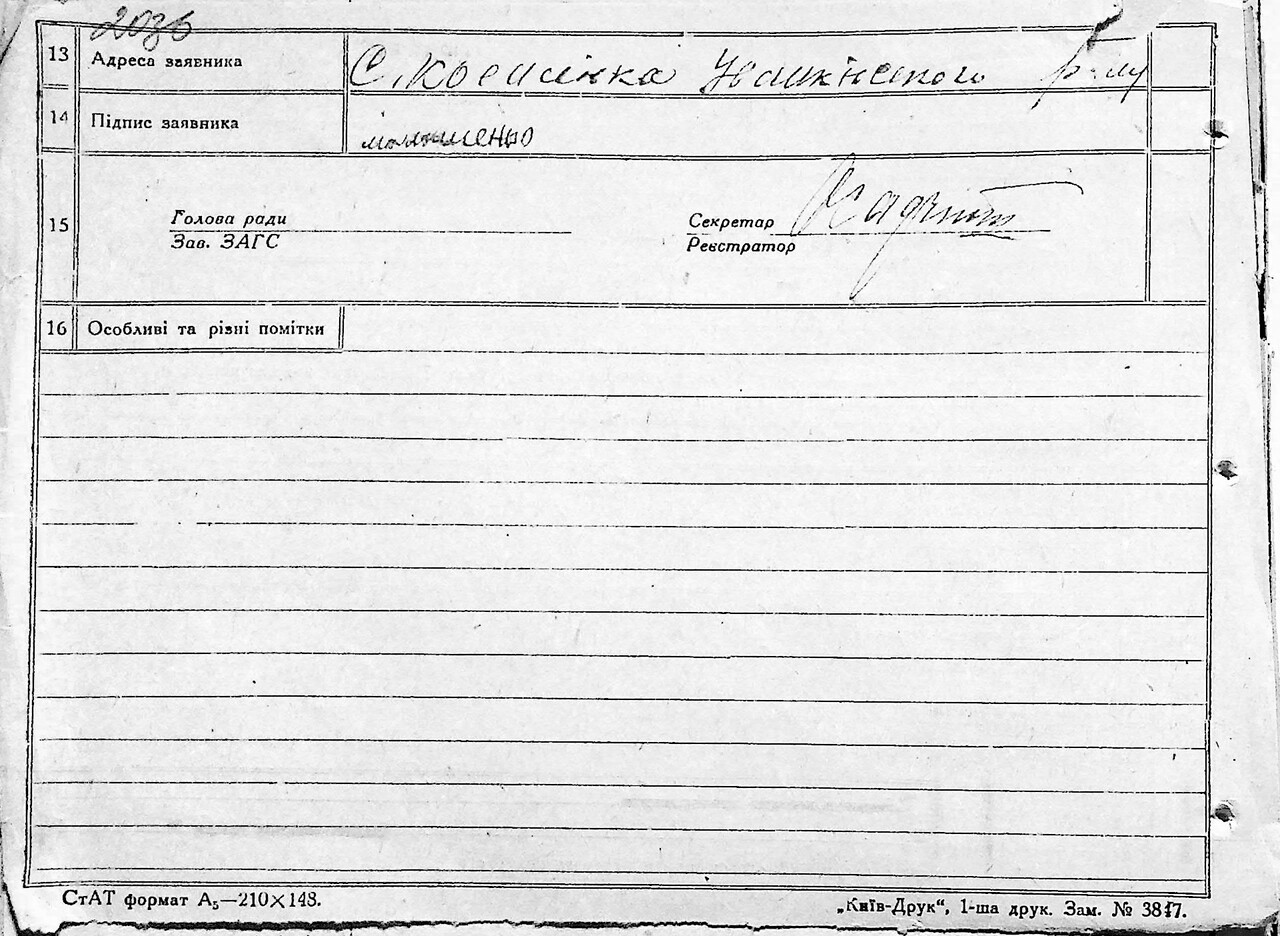 203б
13 Адреса заявника С. Косминка Ивашківского р-ну
14 Підпис заявника
15 Голова ради Секретар
Зав. ЗАГС Реєстратор
16 Особливі та різні помітки
СтАТ формат А₅—210×148. „Київ-Друк“, 1-ша друк. Зам. № 3817.